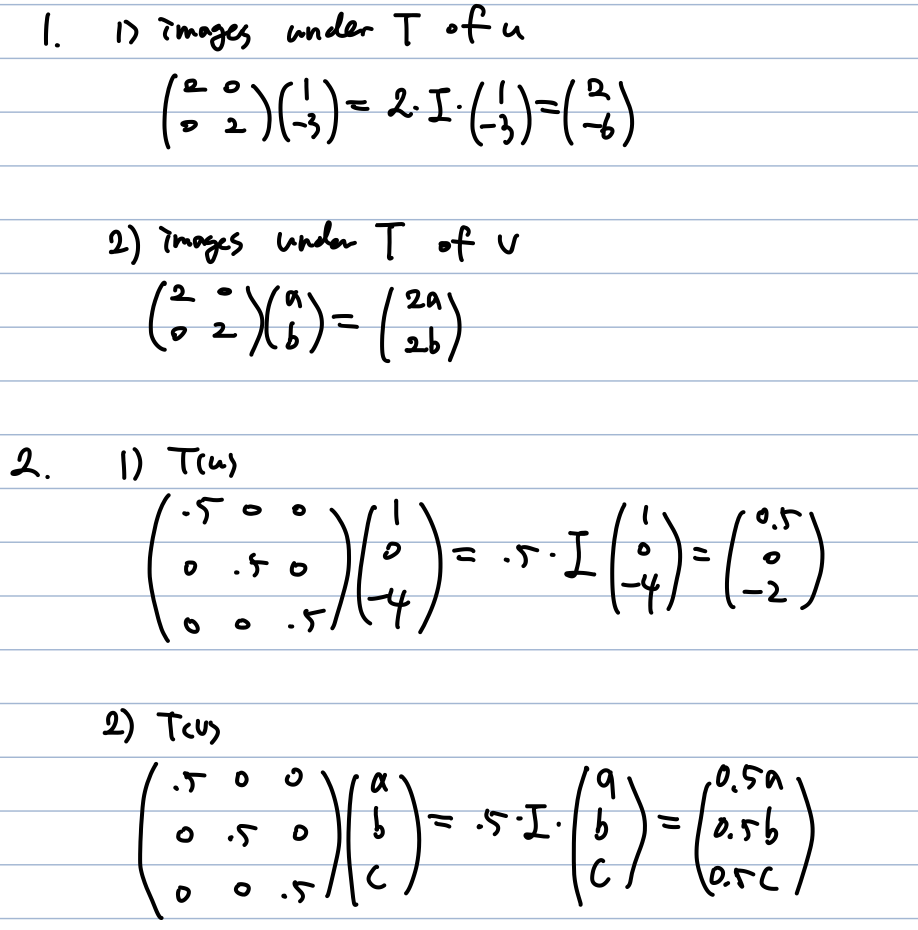 1. 1) images under T of u
(2 0
0 2)(1
-3) = 2·I·(1
-3) = (2
-6)
2) images under T of v
(2 0
0 2)(a
b) = (2a
2b)
2. 1) T(u)
(.5 0 0
0 .5 0
0 0 .5)(1
0
-4) = .5·I(1
0
-4) = (0.5
0
-2)
2) T(v)
(.5 0 0
0 .5 0
0 0 .5)(a
b
c) = .5·I·(a
b
c) = (0.5a
0.5b
0.5c)